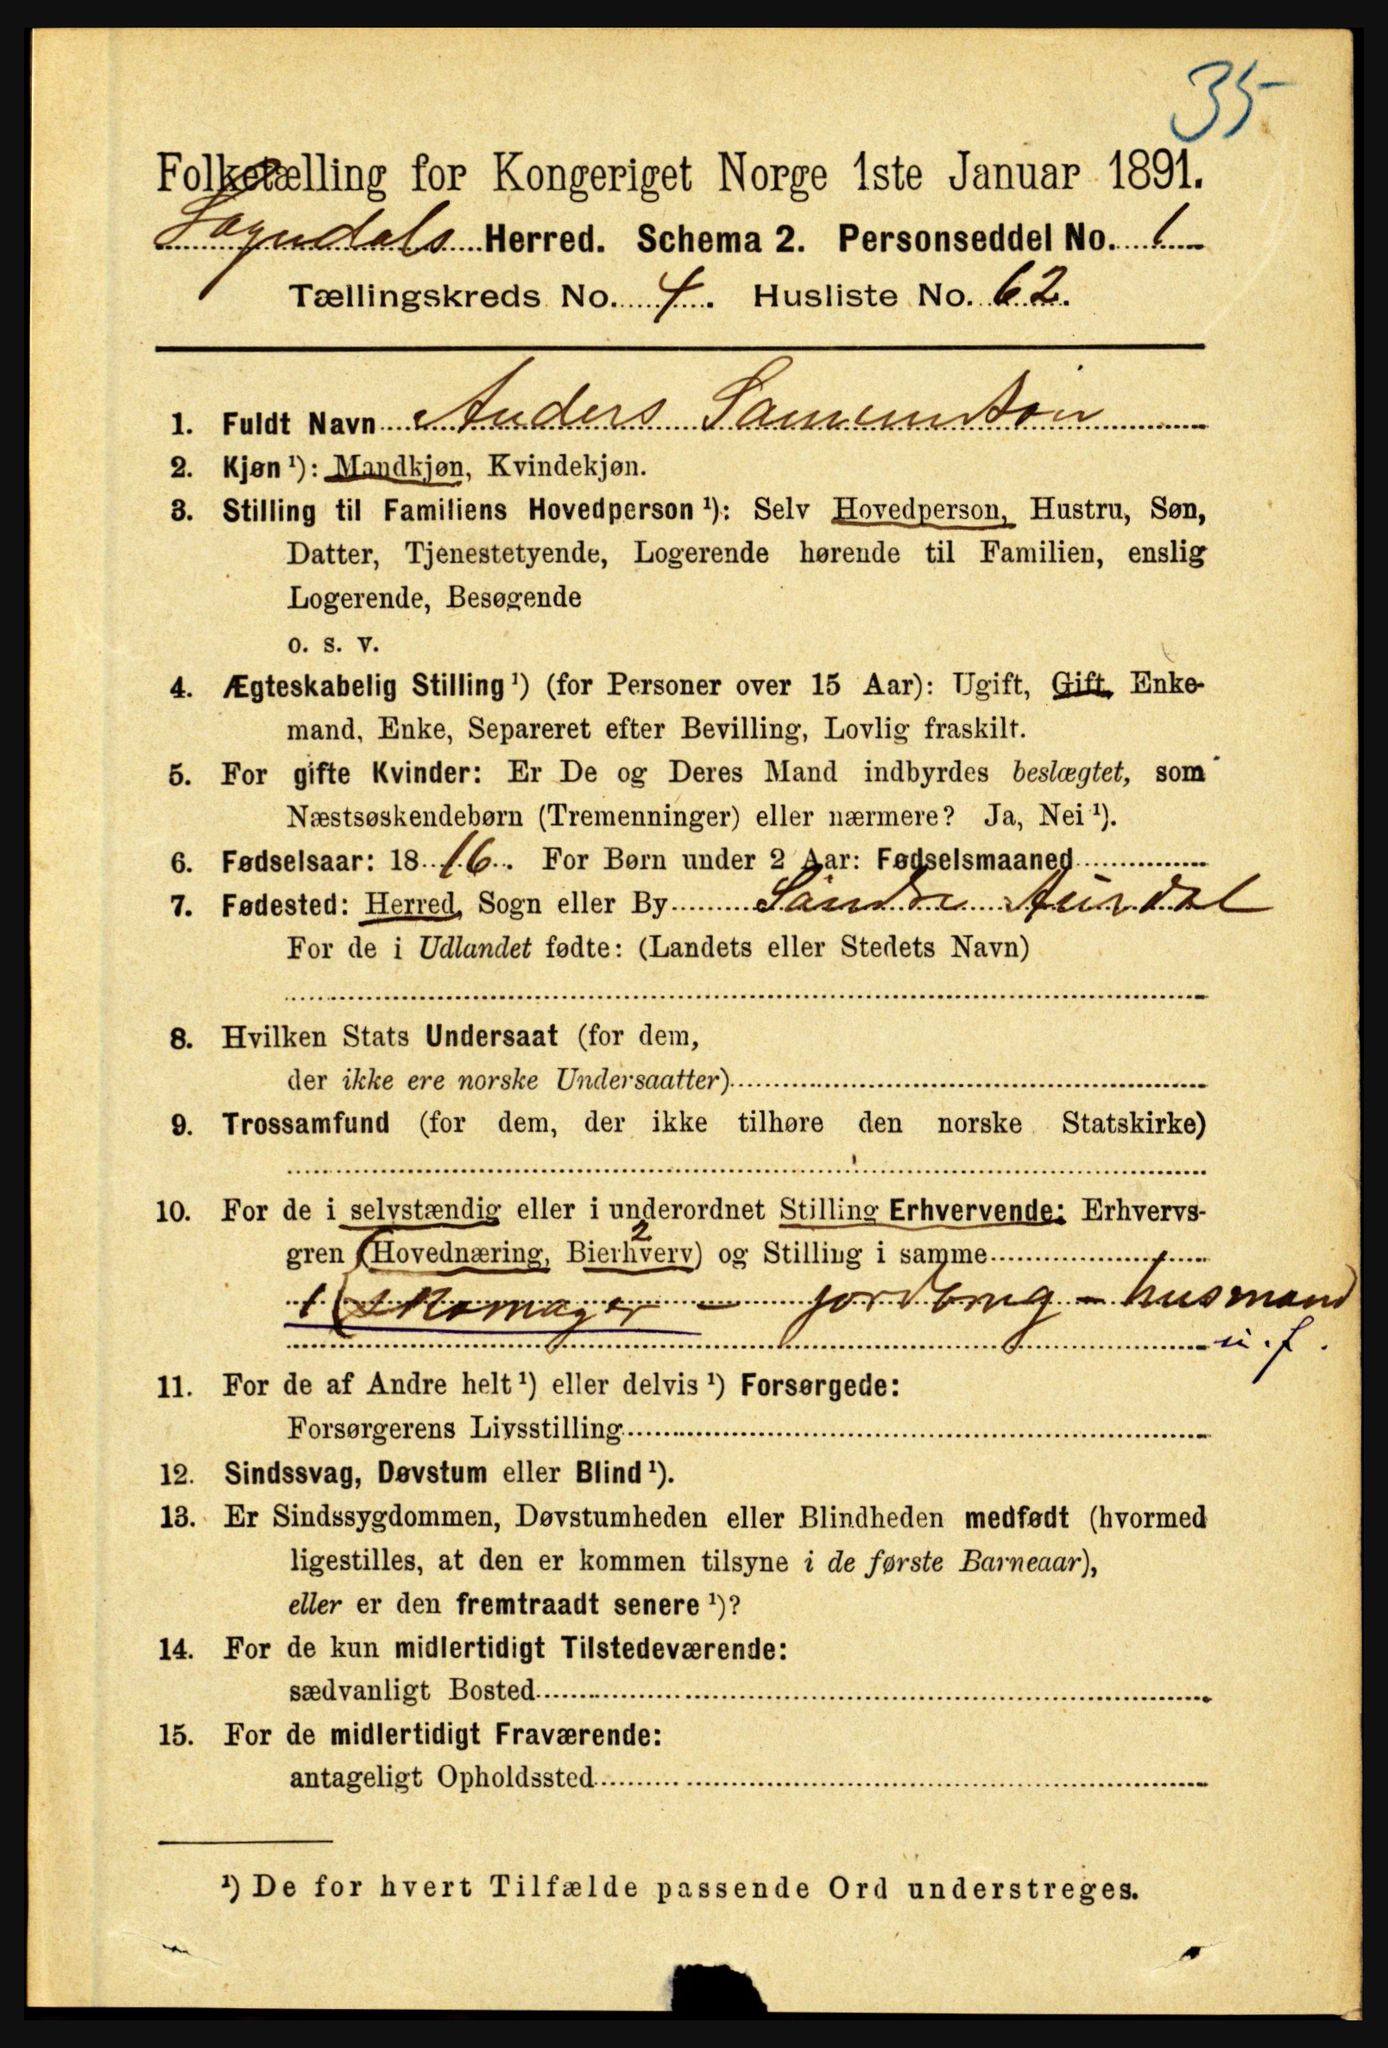 35
Folketælling for Kongeriget Norge 1ste Januar 1891.
Sogndals Herred. Schema 2. Personseddel No. 1
Tællingskreds No. 4. Husliste No. 62.
1. Fuldt Navn Anders
2. Kjøn ¹): Mandkjøn, Kvindekjøn.
3. Stilling til Familiens Hovedperson ¹): Selv Hovedperson, Hustru, Søn,
Datter, Tjenestetyende, Logerende hørende til Familien, enslig
Logerende, Besøgende
o. s. v.
4. Ægteskabelig Stilling ¹) (for Personer over 15 Aar): Ugift, Gift, Enke-
mand, Enke, Separeret efter Bevilling, Lovlig fraskilt.
5. For gifte Kvinder: Er De og Deres Mand indbyrdes beslægtet, som
Næstsøskendebørn (Tremenninger) eller nærmere? Ja, Nei ¹).
6. Fødselsaar: 1816. For Børn under 2 Aar: Fødselsmaaned
7. Fødested: Herred, Sogn eller By Søndre Aurdal
For de i Udlandet fødte: (Landets eller Stedets Navn)
8. Hvilken Stats Undersaat (for dem,
der ikke ere norske Undersaatter)
9. Trossamfund (for dem, der ikke tilhøre den norske Statskirke)
10. For de i selvstændig eller i underordnet Stilling Erhvervende: Erhvervs-
2
gren (Hovednæring, Bierhverv) og Stilling i samme
1 (Skomager - jordbrug - husmand
u. f.
11. For de af Andre helt ¹) eller delvis ¹) Forsørgede:
Forsørgerens Livsstilling
12. Sindssvag, Døvstum eller Blind ¹).
13. Er Sindssygdommen, Døvstumheden eller Blindheden medfødt (hvormed
ligestilles, at den er kommen tilsyne i de første Barneaar),
eller er den fremtraadt senere ¹)?
14. For de kun midlertidigt Tilstedeværende:
sædvanligt Bosted
15. For de midlertidigt Fraværende:
antageligt Opholdssted
¹) De for hvert Tilfælde passende Ord understreges.